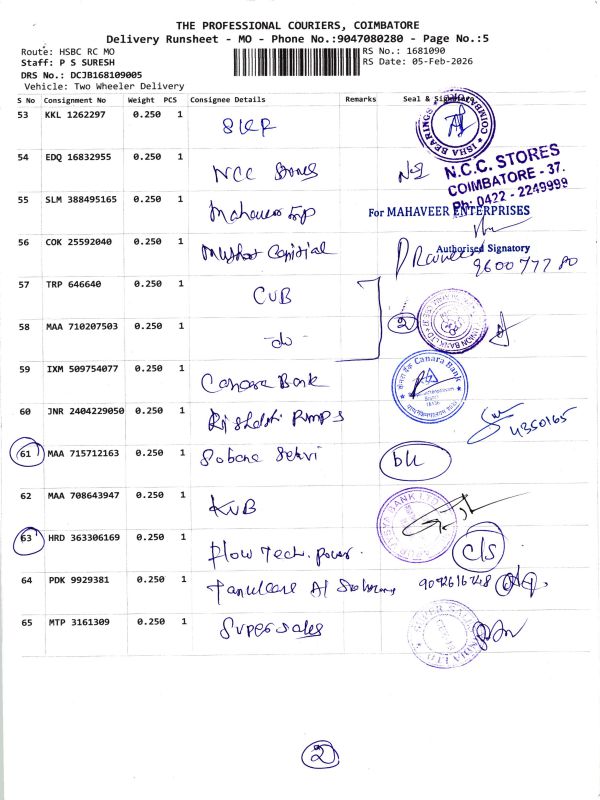 THE PROFESSIONAL COURIERS, COIMBATORE
Delivery Runsheet - MO - Phone No.:9047080280 - Page No.:5
Route: HSBC RC MO
RS No.: 1681090
Staff: P S SURESH
RS Date: 05-Feb-2026
DRS No.: DCJB168109005
Vehicle: Two Wheeler Delivery
S No Consignment No Weight PCS Consignee Details Remarks Seal & Signature
53 KKL 1262297 0.250 1 SKF
ISHA BEARINGS COIMBATORE
54 EDQ 16832955 0.250 1 NCC Stores
N.C.C. STORES
COIMBATORE - 37.
Ph: 0422 - 2249999
55 SLM 388495165 0.250 1 Mahaveer Enp
For MAHAVEER ENTERPRISES
56 COK 25592040 0.250 1 Muthoot Capitial
Authorised Signatory
Praveen
96007 77 80
57 TRP 646640 0.250 1 CUB
58 MAA 710207503 0.250 1 -do-
2
59 IXM 509754077 0.250 1 Canara Bank
Canara Bank
60 JNR 2404229050 0.250 1 Pumps
4350165
61 MAA 715712163 0.250 1 Sobana Selvi
62 MAA 708643947 0.250 1 KVB
63 HRD 363306169 0.250 1 Flow Tech. power.
C/S
64 PDK 9929381 0.250 1
9092616748
65 MTP 3161309 0.250 1 Super sales
2